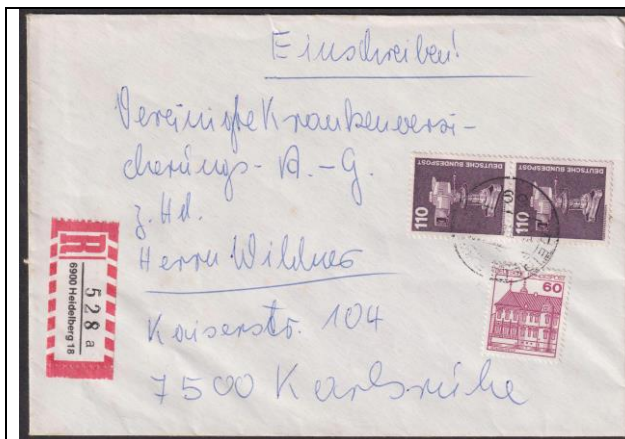 Einschreiben!
Vereinigte Krankenversi-
cherungs-A.-G.
z. Hd.
Herrn Wildner
Kaiserstr. 104
7500 Karlsruhe
R
528 a
6900 Heidelberg 18
DEUTSCHE BUNDESPOST
110
DEUTSCHE BUNDESPOST
110
60